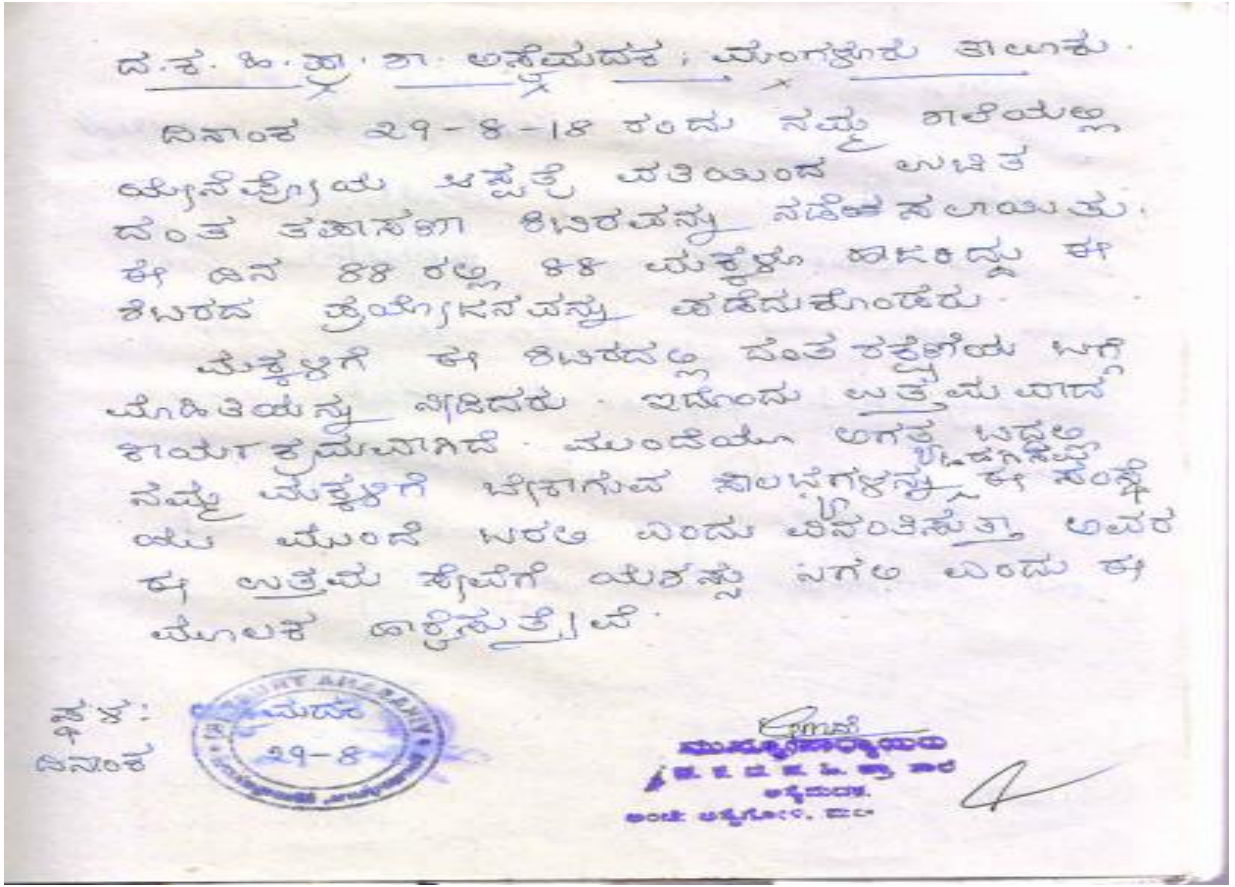 ದ.ಕ. ಹಿ. ಪ್ರಾ. ಶಾ. ಅಸೈಮದಕ, ಮಂಗಳೂರು ತಾಲೂಕು.
ದಿನಾಂಕ 29-8-18 ರಂದು ನಮ್ಮ ಶಾಲೆಯಲ್ಲಿ
ಯೇನೆಪೋಯ ಆಸ್ಪತ್ರೆ ವತಿಯಿಂದ ಉಚಿತ
ದಂತ ತಪಾಸಣಾ ಶಿಬಿರವನ್ನು ನಡೆಸಲಾಯಿತು.
ಈ ದಿನ 88 ರಲ್ಲಿ 88 ಮಕ್ಕಳೂ ಹಾಜರಿದ್ದು ಈ
ಶಿಬಿರದ ಪ್ರಯೋಜನವನ್ನು ಪಡೆದುಕೊಂಡರು.
ಮಕ್ಕಳಿಗೆ ಈ ಶಿಬಿರದಲ್ಲಿ ದಂತ ರಕ್ಷಣೆಯ ಬಗ್ಗೆ
ಮಾಹಿತಿಯನ್ನು ನೀಡಿದರು. ಇದೊಂದು ಉತ್ತಮವಾದ
ಕಾರ್ಯಕ್ರಮವಾಗಿದೆ. ಮುಂದೆಯೂ ಅಗತ್ಯ ಬಿದ್ದಲ್ಲಿ
ನಮ್ಮ ಮಕ್ಕಳಿಗೆ ಬೇಕಾಗುವ ಸೌಲಭ್ಯಗಳನ್ನು ಒದಗಿಸಲು ಈ ಸಂಸ್ಥೆ
ಯು ಮುಂದೆ ಬರಲಿ ಎಂದು ವಿನಂತಿಸುತ್ತಾ ಅವರ
ಈ ಉತ್ತಮ ಸೇವೆಗೆ ಯಶಸ್ಸು ಸಿಗಲಿ ಎಂದು ಈ
ಮೂಲಕ ಹಾರೈಸುತ್ತೇವೆ.
ಸ್ಥಳ: ಮದಕ
ದಿನಾಂಕ 29-8
ಮುಖ್ಯೋಪಾಧ್ಯಾಯರು